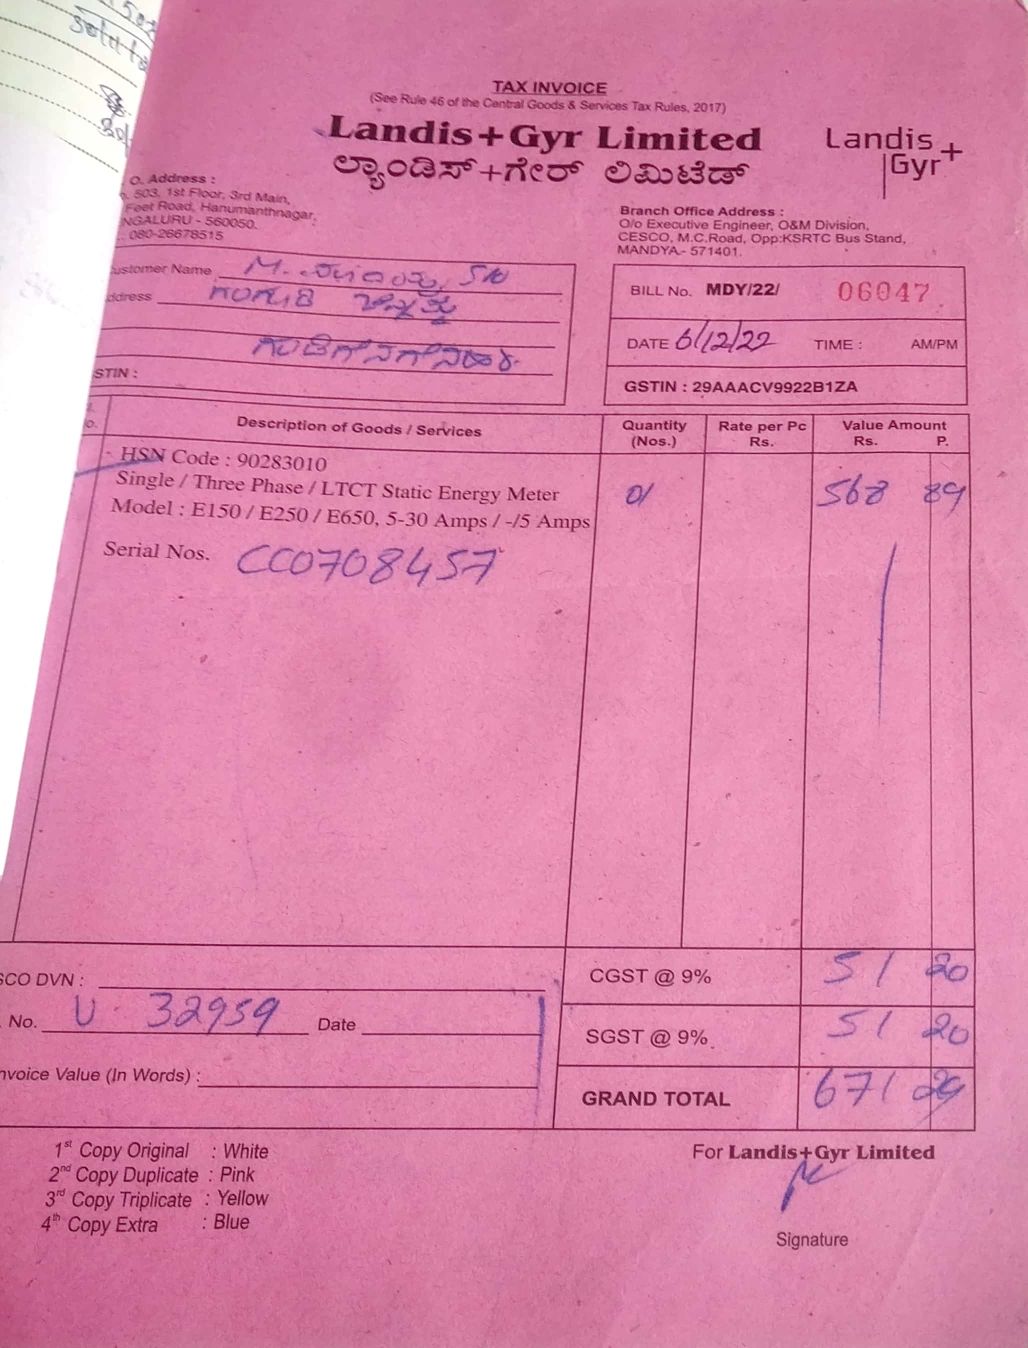 TAX INVOICE
(See Rule 46 of the Central Goods & Services Tax Rules, 2017)
Landis+Gyr Limited
ಲ್ಯಾಂಡಿಸ್+ಗೇರ್ ಲಿಮಿಟೆಡ್
Landis+
Gyr
O. Address :
503, 1st Floor, 3rd Main,
Feet Road, Hanumanthnagar,
NGALURU - 560050.
080-26678515
Branch Office Address :
O/o Executive Engineer, O&M Division,
CESCO, M.C.Road, Opp:KSRTC Bus Stand,
MANDYA.- 571401.
ustomer Name M.
ddress
STIN :
BILL No. MDY/22/ 06047
DATE 6/12/22 TIME : AM/PM
GSTIN : 29AAACV9922B1ZA
o. Description of Goods / Services Quantity (Nos.) Rate per Pc Rs. Value Amount Rs. P.
HSN Code : 90283010
Single / Three Phase / LTCT Static Energy Meter 01 568 89
Model : E150 / E250 / E650, 5-30 Amps / -/5 Amps
Serial Nos. CC0708457
SCO DVN :
CGST @ 9% 51 20
No. U 32959 Date
SGST @ 9% 51 20
nvoice Value (In Words) :
GRAND TOTAL 671 29
1st Copy Original : White
2nd Copy Duplicate : Pink
3rd Copy Triplicate : Yellow
4th Copy Extra : Blue
For Landis+Gyr Limited
Signature